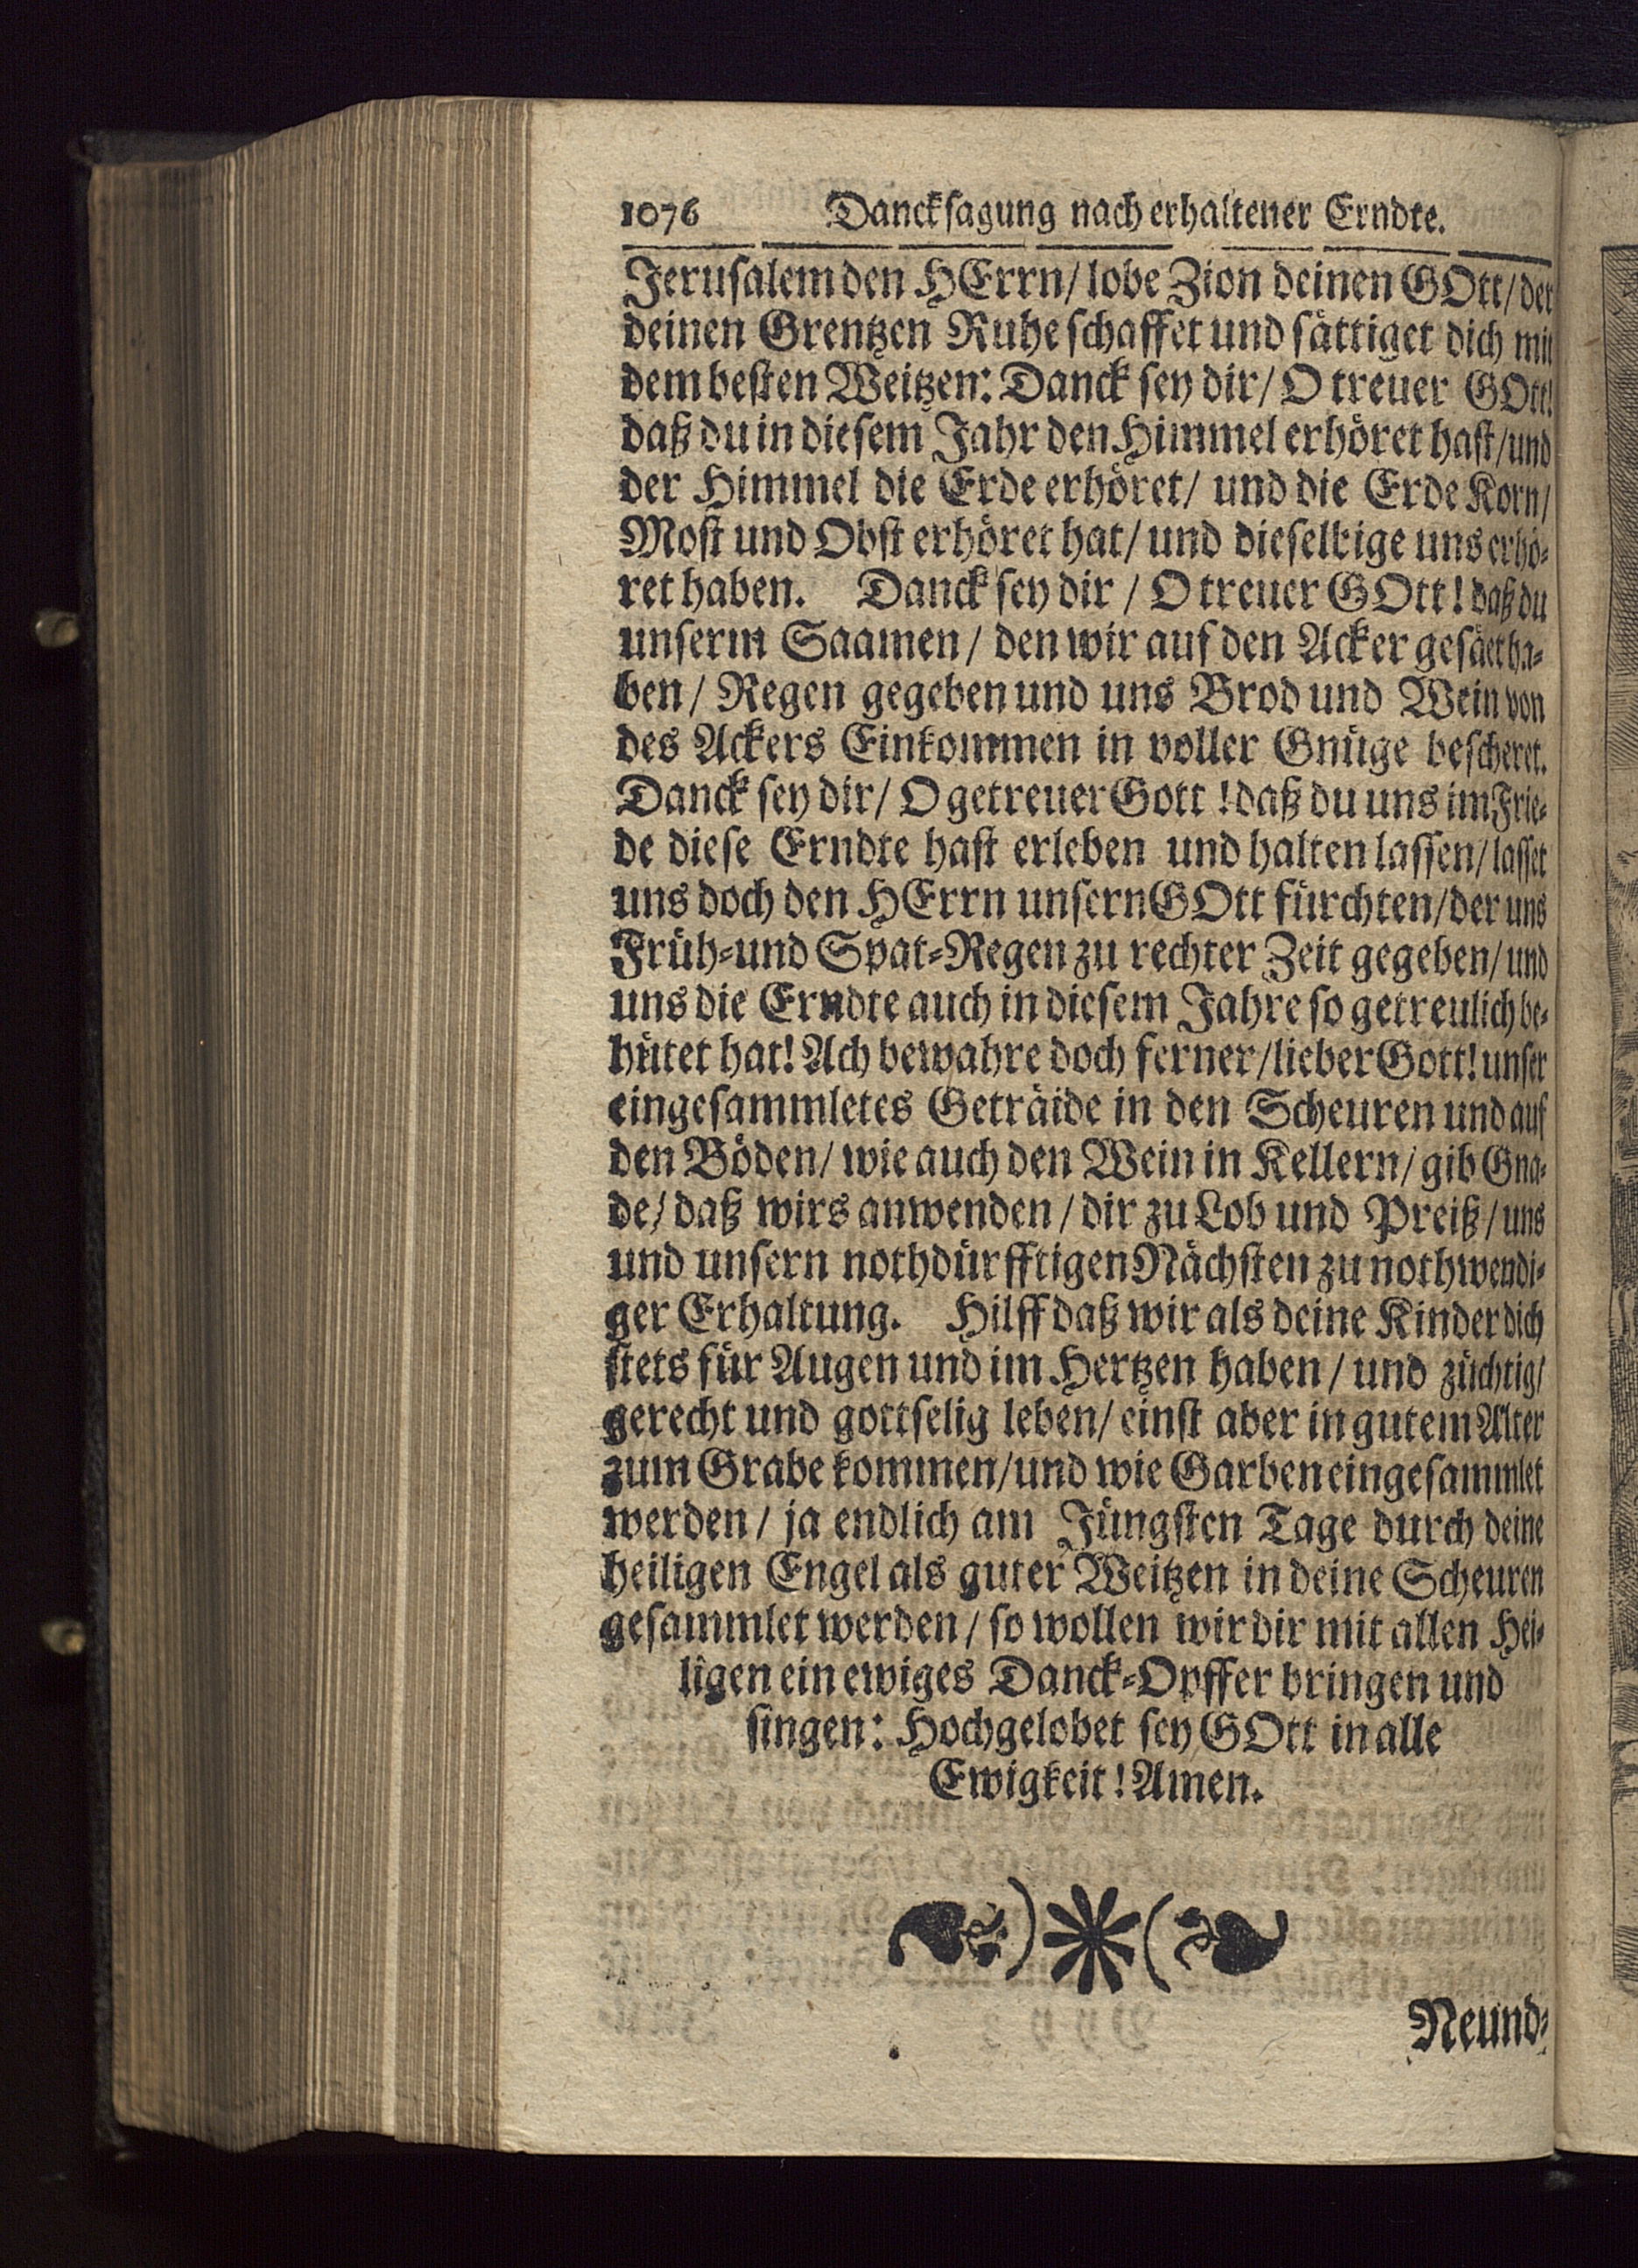 1076 Dancksagung nach erhaltener Erndte.
Jerusalem den HErrn/ lobe Zion deinen GOtt/ der
deinen Grentzen Ruhe schaffet und sättiget dich mit
dem besten Weitzen: Danck sey dir/ O treuer GOtt!
daß du in diesem Jahr den Himmel erhöret hast/ und
der Himmel die Erde erhöret/ und die Erde Korn/
Most und Obst erhöret hat/ und dieselbige uns erhö-
ret haben. Danck sey dir / O treuer GOtt! daß du
unserm Saamen/ den wir auf den Acker gesäet ha-
ben/ Regen gegeben und uns Brod und Wein von
des Ackers Einkommen in voller Gnüge bescheret.
Danck sey dir/ O getreuer Gott! daß du uns im Frie-
de diese Erndte hast erleben und halten lassen/ lasset
uns doch den HErrn unsern GOtt fürchten/ der uns
Früh- und Spat-Regen zu rechter Zeit gegeben/ und
uns die Erndte auch in diesem Jahre so getreulich be-
hütet hat! Ach bewahre doch ferner/ lieber Gott! unser
eingesammletes Geträide in den Scheuren und auf
den Böden/ wie auch den Wein in Kellern/ gib Gna-
de/ daß wirs anwenden/ dir zu Lob und Preiß/ uns
und unsern nothdürfftigen Nächsten zu nothwendi-
ger Erhaltung. Hilff daß wir als deine Kinder dich
stets für Augen und im Hertzen haben/ und züchtig/
gerecht und gottselig leben/ einst aber in gutem Alter
zum Grabe kommen/ und wie Garben eingesammlet
werden/ ja endlich am Jüngsten Tage durch deine
heiligen Engel als guter Weitzen in deine Scheuren
gesammlet werden/ so wollen wir dir mit allen Hei-
ligen ein ewiges Danck-Opffer bringen und
singen: Hochgelobet sey GOtt in alle
Ewigkeit! Amen.
Neund-